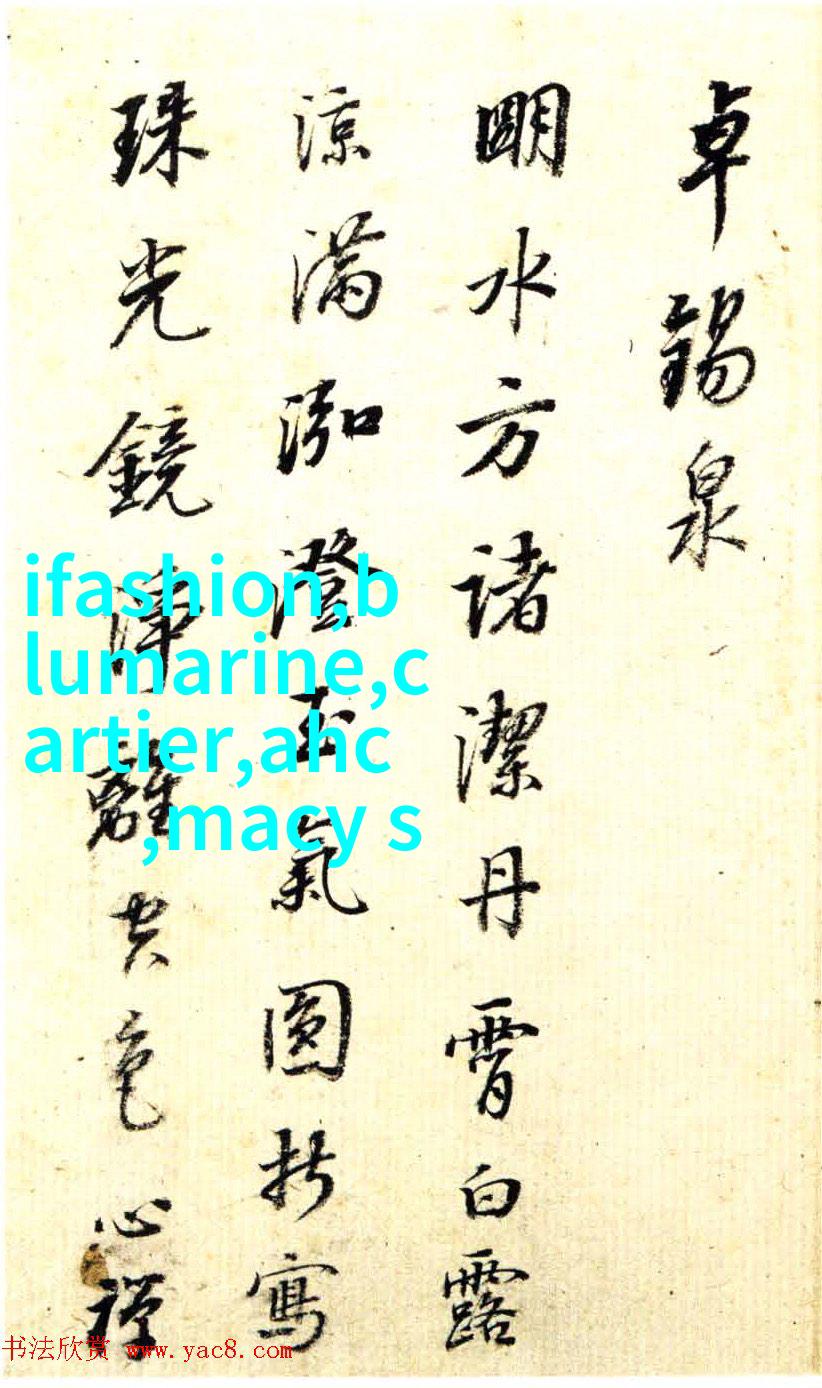 卓錫泉
朙水方諸潔丹霄白露
涼滿泓澄玉氣圓折寫
珠光鏡淨離空色心禪
ifashion,b
lumarine,c
artier,ahc
,macy s
书法欣赏 www.yac8.com